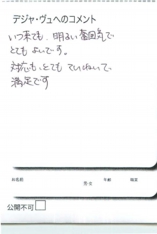 デジャ・ヴュへのコメント
いつ来ても、明るい雰囲気で
とてもよいです。
対応も、とても ていねいで、
満足です
公開不可